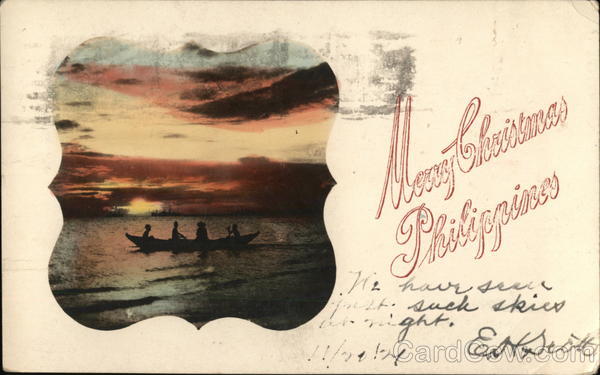 Merry Christmas
Philippines
We have seen
just such skies
at night.
CardCow.com